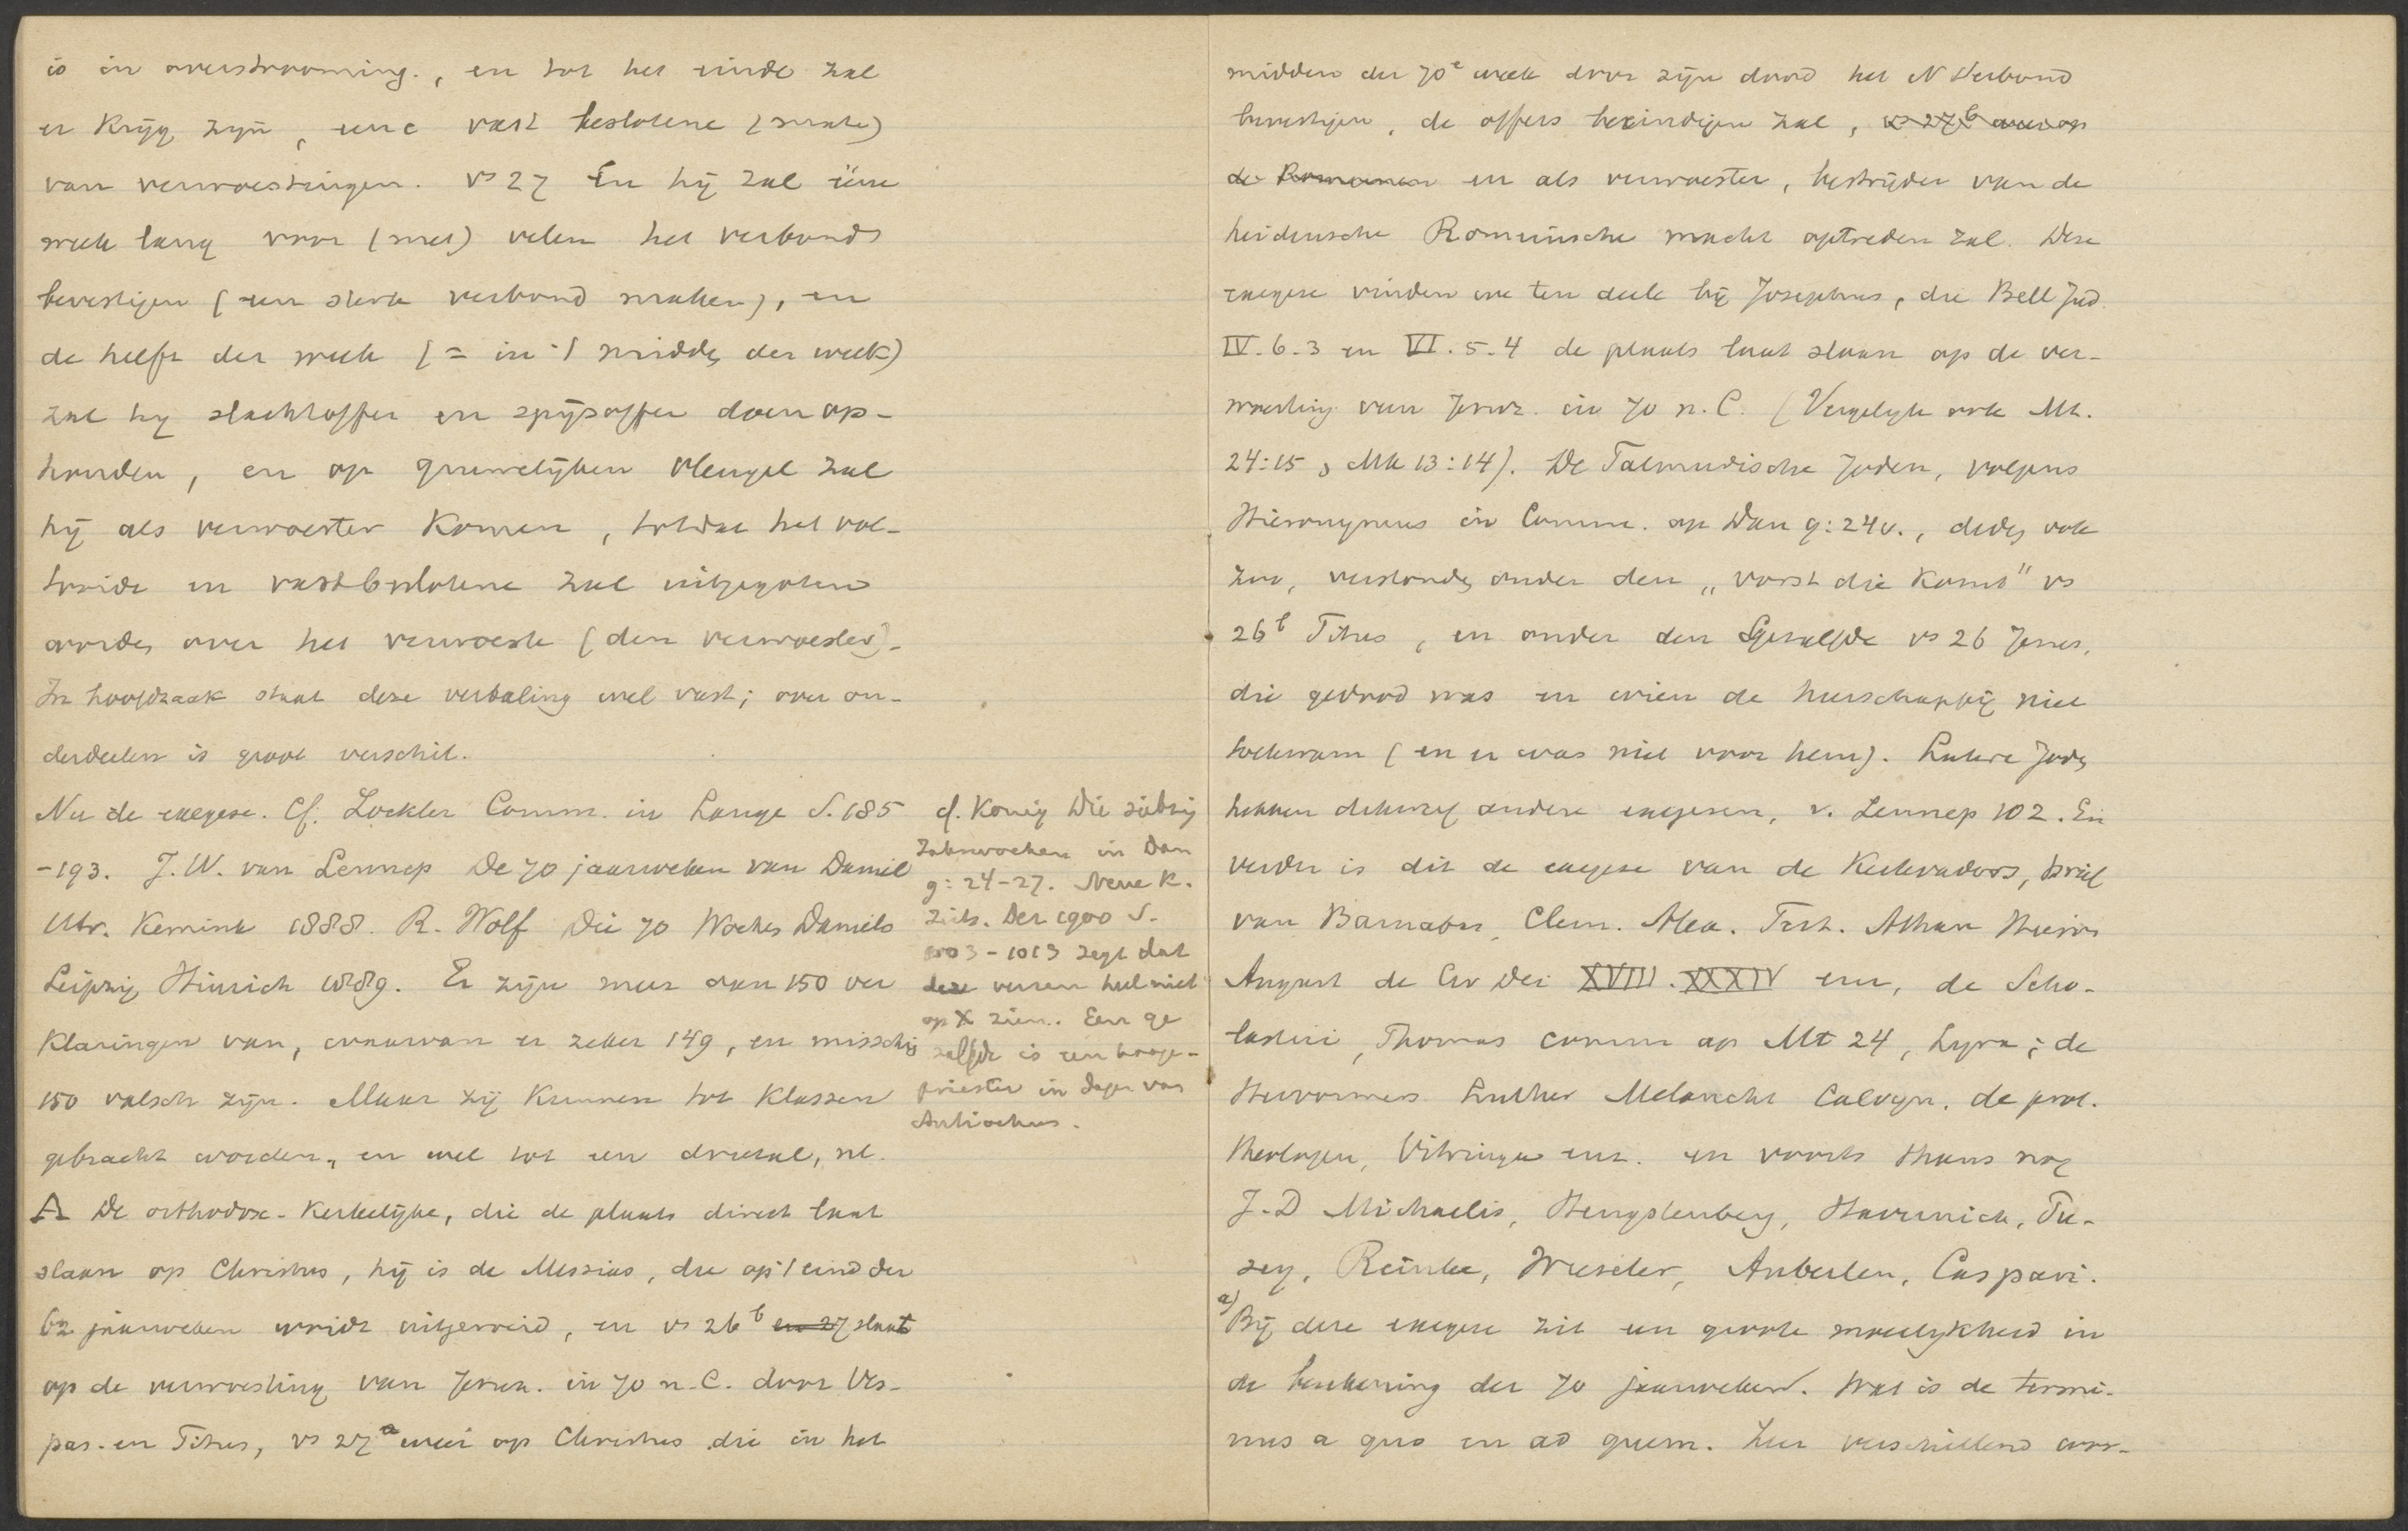 is in overstrooming, en tot het einde zal
er krijg zijn, eene vast beslotene (mate)
van verwoestingen. vs 27 En hij zal ééne
week lang voor (met) velen het verbond
bevestigen (een sterk verbond maken), en
de helft der week (= in 't midd. der week)
zal hij slachtoffer en spijsoffer doen op-
houden, en op gruwelijken vleugel zal
hij als verwoester komen, totdat het vol-
tooide en vastbeslotene zal uitgegoten
worde, over het verwoeste (den verwoester).
In hoofdzaak staat deze vertaling wel vast; over on-
derdeelen is groot verschil.
Nu de exegese. Cf. Zöckler Comm. in Lange S. 185
-193. J.W. van Lennep De 70 jaarweken van Daniel
Utr. Kemink 1888. R. Wolf Die 70 Wochen Daniels
Leipzig Hinrich 1889. Er zijn meer dan 150 ver
klaringen van, waarvan er zeker 149, en missch.
150 valsch zijn. Maar zij kunnen tot klassen
gebracht worden, en wel tot een drietal, nl.
A De orthodox-kerkelijke, die de plaats direct laat
slaan op Christus, hij is de Messias, die op 't eind der
62 jaarweken wordt uitgeroeid, en vs 26b en 27 slaat
op de verwoesting van Jeruz. in 70 n.C. door Ves-
pas. en Titus, vs 27a weer op Christus die in het
cf. König Die siebzig
Jahrwochen in Dan
9:24-27. Neue K.
Zeits. Dez 1900 S.
1003-1013 zegt dat
deze verzen heel niet
op X zien. Een ge
zalfde is een hooge-
priester in dagen van
Antiochus.
midden der 70e week door zijn dood het N Verbond
bevestigen, de offers beeindigen zal, vs 27b weer op
de Romeinen en als verwoester, bestrijder van de
heidensche Romeinsche macht optreden zal. Deze
exegese vinden we ten deele bij Josephus, die Bell Jud.
IV.6.3 en VI.5.4 de plaats laat slaan op de ver-
woesting van Jeruz. in 70 n.C. (Vergelijk ook Mt.
24:15, Mk 13:14). De Talmudische Joden, volgens
Hieronymus in Comm. op Dan 9:24v., deden ook
zoo, verstonden onder den „vorst die komt" vs
26b Titus, en onder den Gezalfde vs 26 Jezus,
die gedood was en wien de heerschappij niet
toekwam (en er was niet voor hem). Latere Joden
hebben dikwijl andere exegesen, v. Lennep 102. En
verder is dit de exegese van de Kerkvaders, brief
van Barnabas, Clem. Alex. Tert. Athan Hieron
August de Civ Dei XVIII.XXXIV enz, de Scho-
lastici, Thomas comm op Mt 24, Lyra; de
Hervormers Luther Melancht Calvijn, de prot.
theologen, Vitringa enz. en voorts thans nog
J.D Michaelis, Hengstenberg, Havernick, Pu-
sey, Reinke, Wieseler, Auberlen, Caspari.
a) Bij deze exegese zit een groote moeilijkheid in
de berekening der 70 jaarweken. Wat is de termi-
nus a quo en ad quem. Zeer verschillend wor-